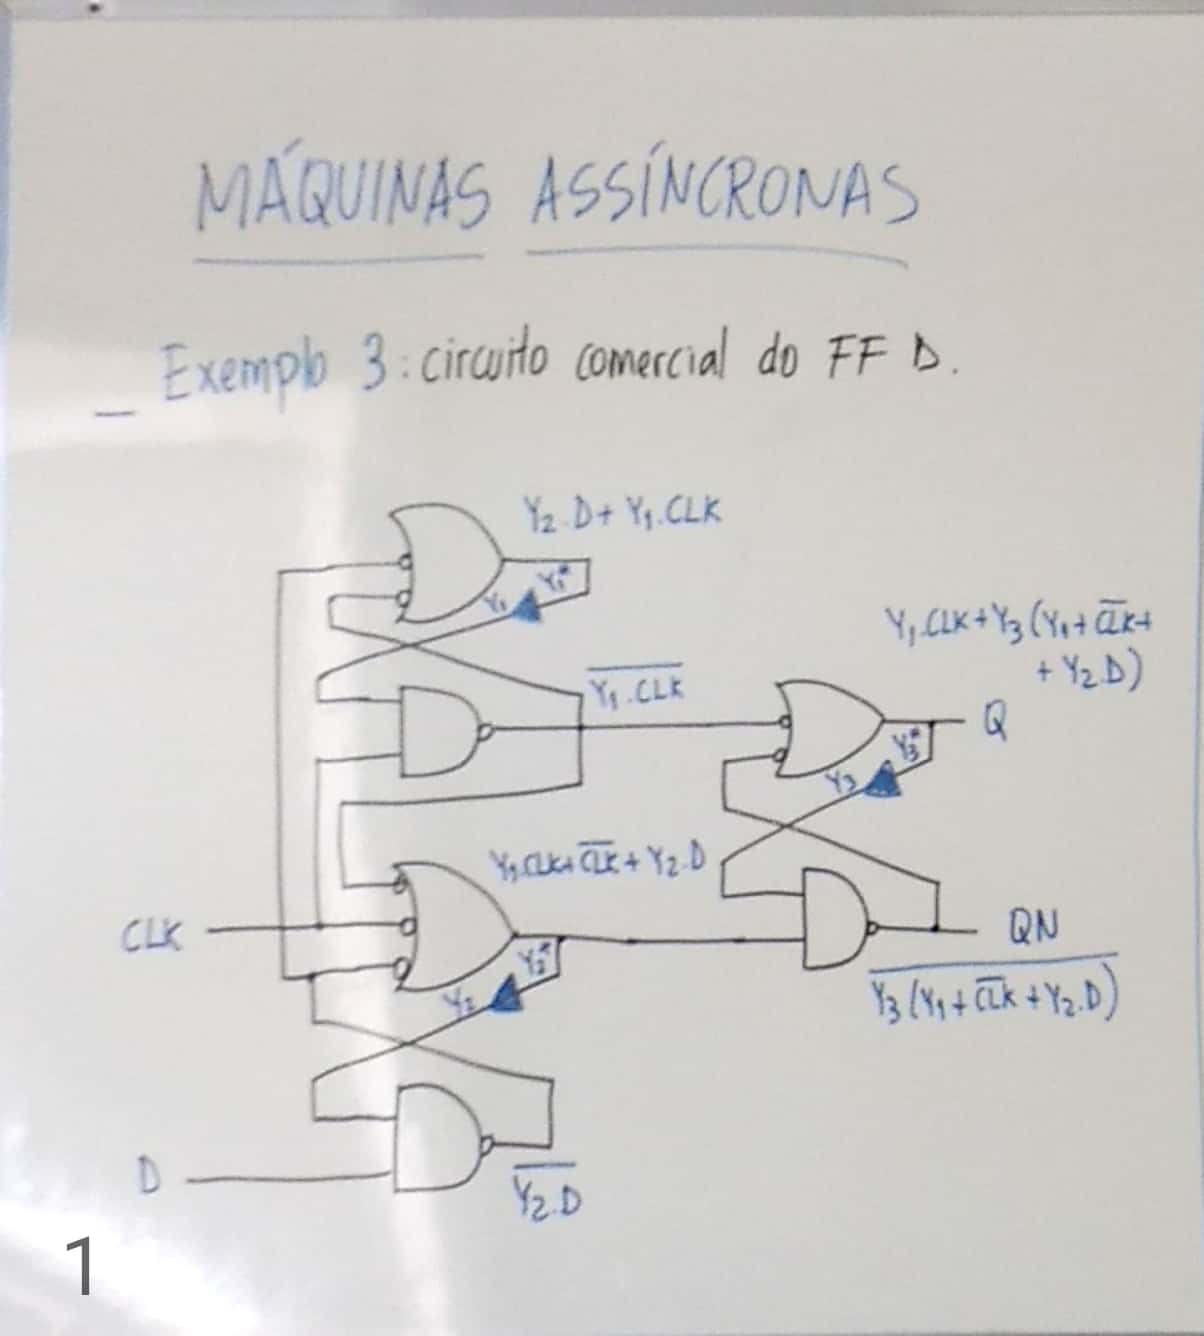 MÁQUINAS ASSÍNCRONAS
Exemplo 3: circuito comercial do FF D.
Y₂.D + Y₁.CLK
Y₁*
Y₁
Y₁.CLK + Y₃(Y₁ + C̅L̅K̅ +
+ Y₂.D)
Y̅₁̅.̅C̅L̅K̅
Q
Y₃*
Y₃
Y₁.CLK + C̅L̅K̅ + Y₂.D
CLK
QN
Y₂*
Y₂
Y̅₃̅(̅Y̅₁̅ ̅+̅ ̅C̅L̅K̅ ̅+̅ ̅Y̅₂̅.̅D̅)̅
D
Y̅₂̅.̅D̅
1